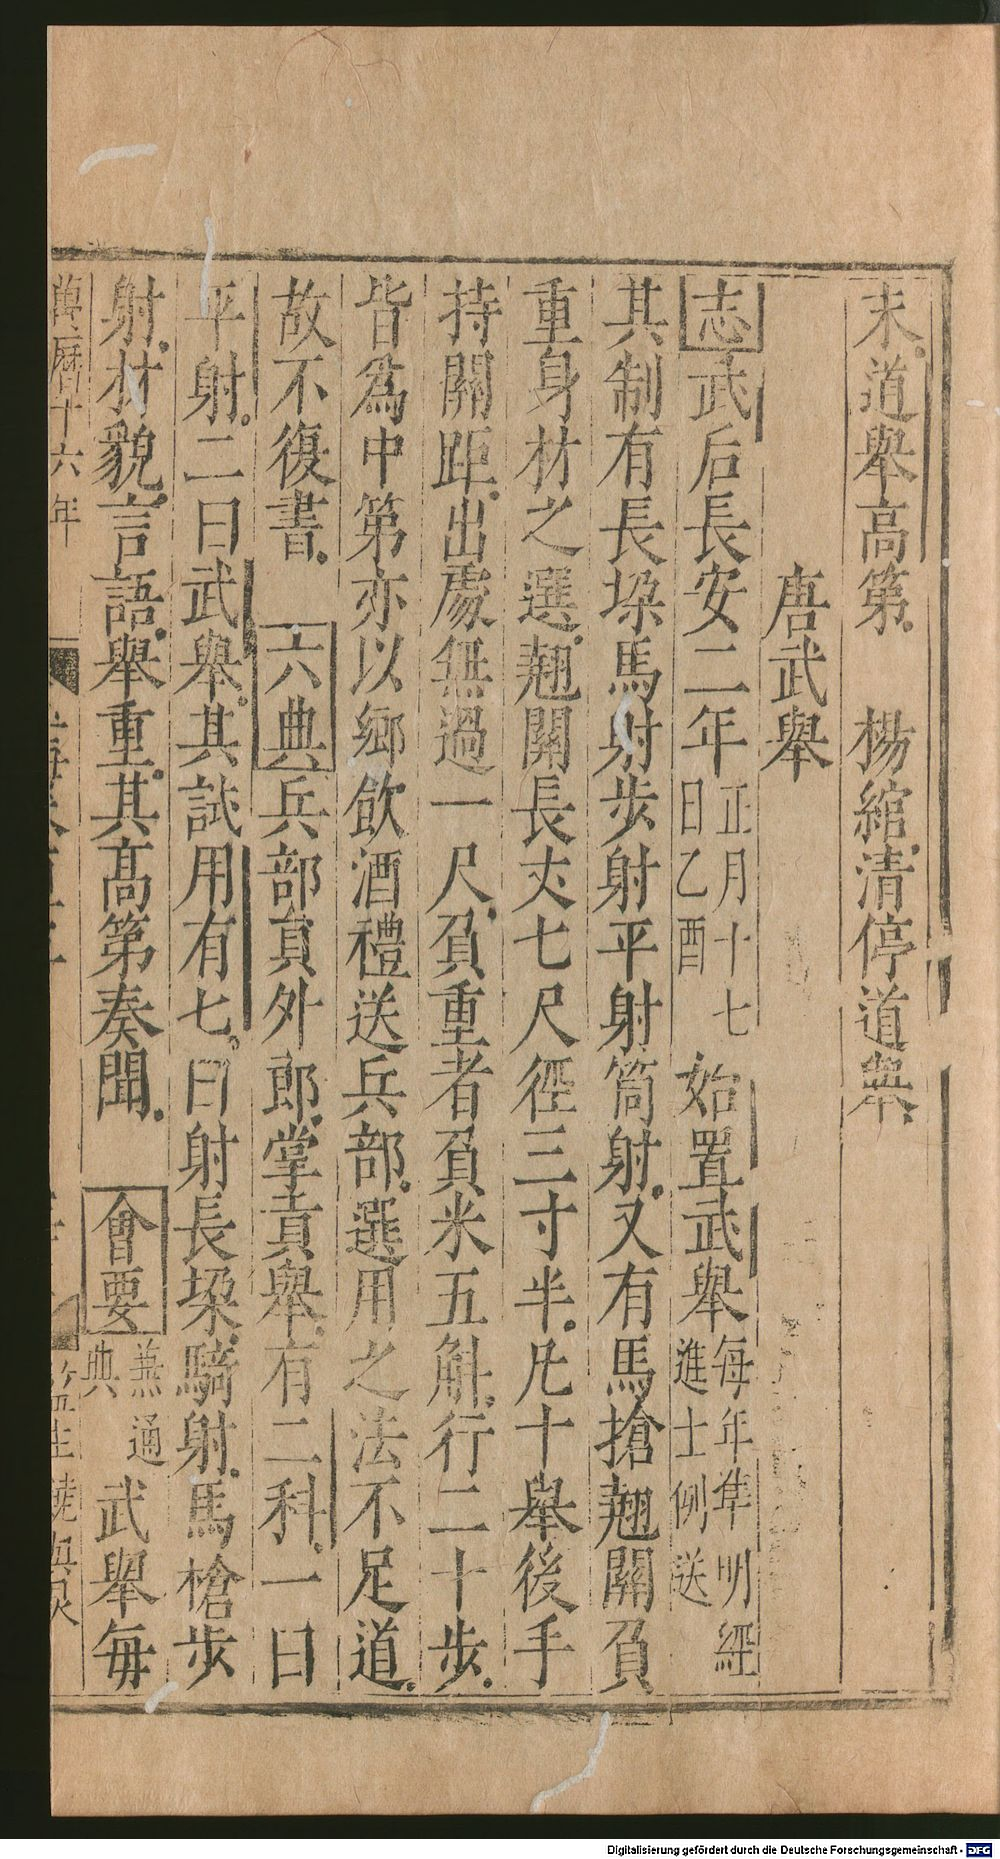 末道舉高第　楊綰清停道舉
唐武舉
志武后長安二年正月十七日乙酉始置武舉每年準明經進士例送
其制有長垜馬射步射平射筒射又有馬搶翹關負
重身材之選翹關長丈七尺徑三寸半凡十舉後手
持關距出處無過一尺負重者負米五斛行二十步
皆為中第亦以鄉飲酒禮送兵部選用之法不足道
故不復書　六典兵部員外郎掌貢舉有二科一曰
平射二曰武舉其試用有七曰射長垜騎射馬槍步
射材貌言語舉重其高第奏聞　會要兼通典武舉每
萬曆十六年
Digitalisierung gefördert durch die Deutsche Forschungsgemeinschaft - DFG